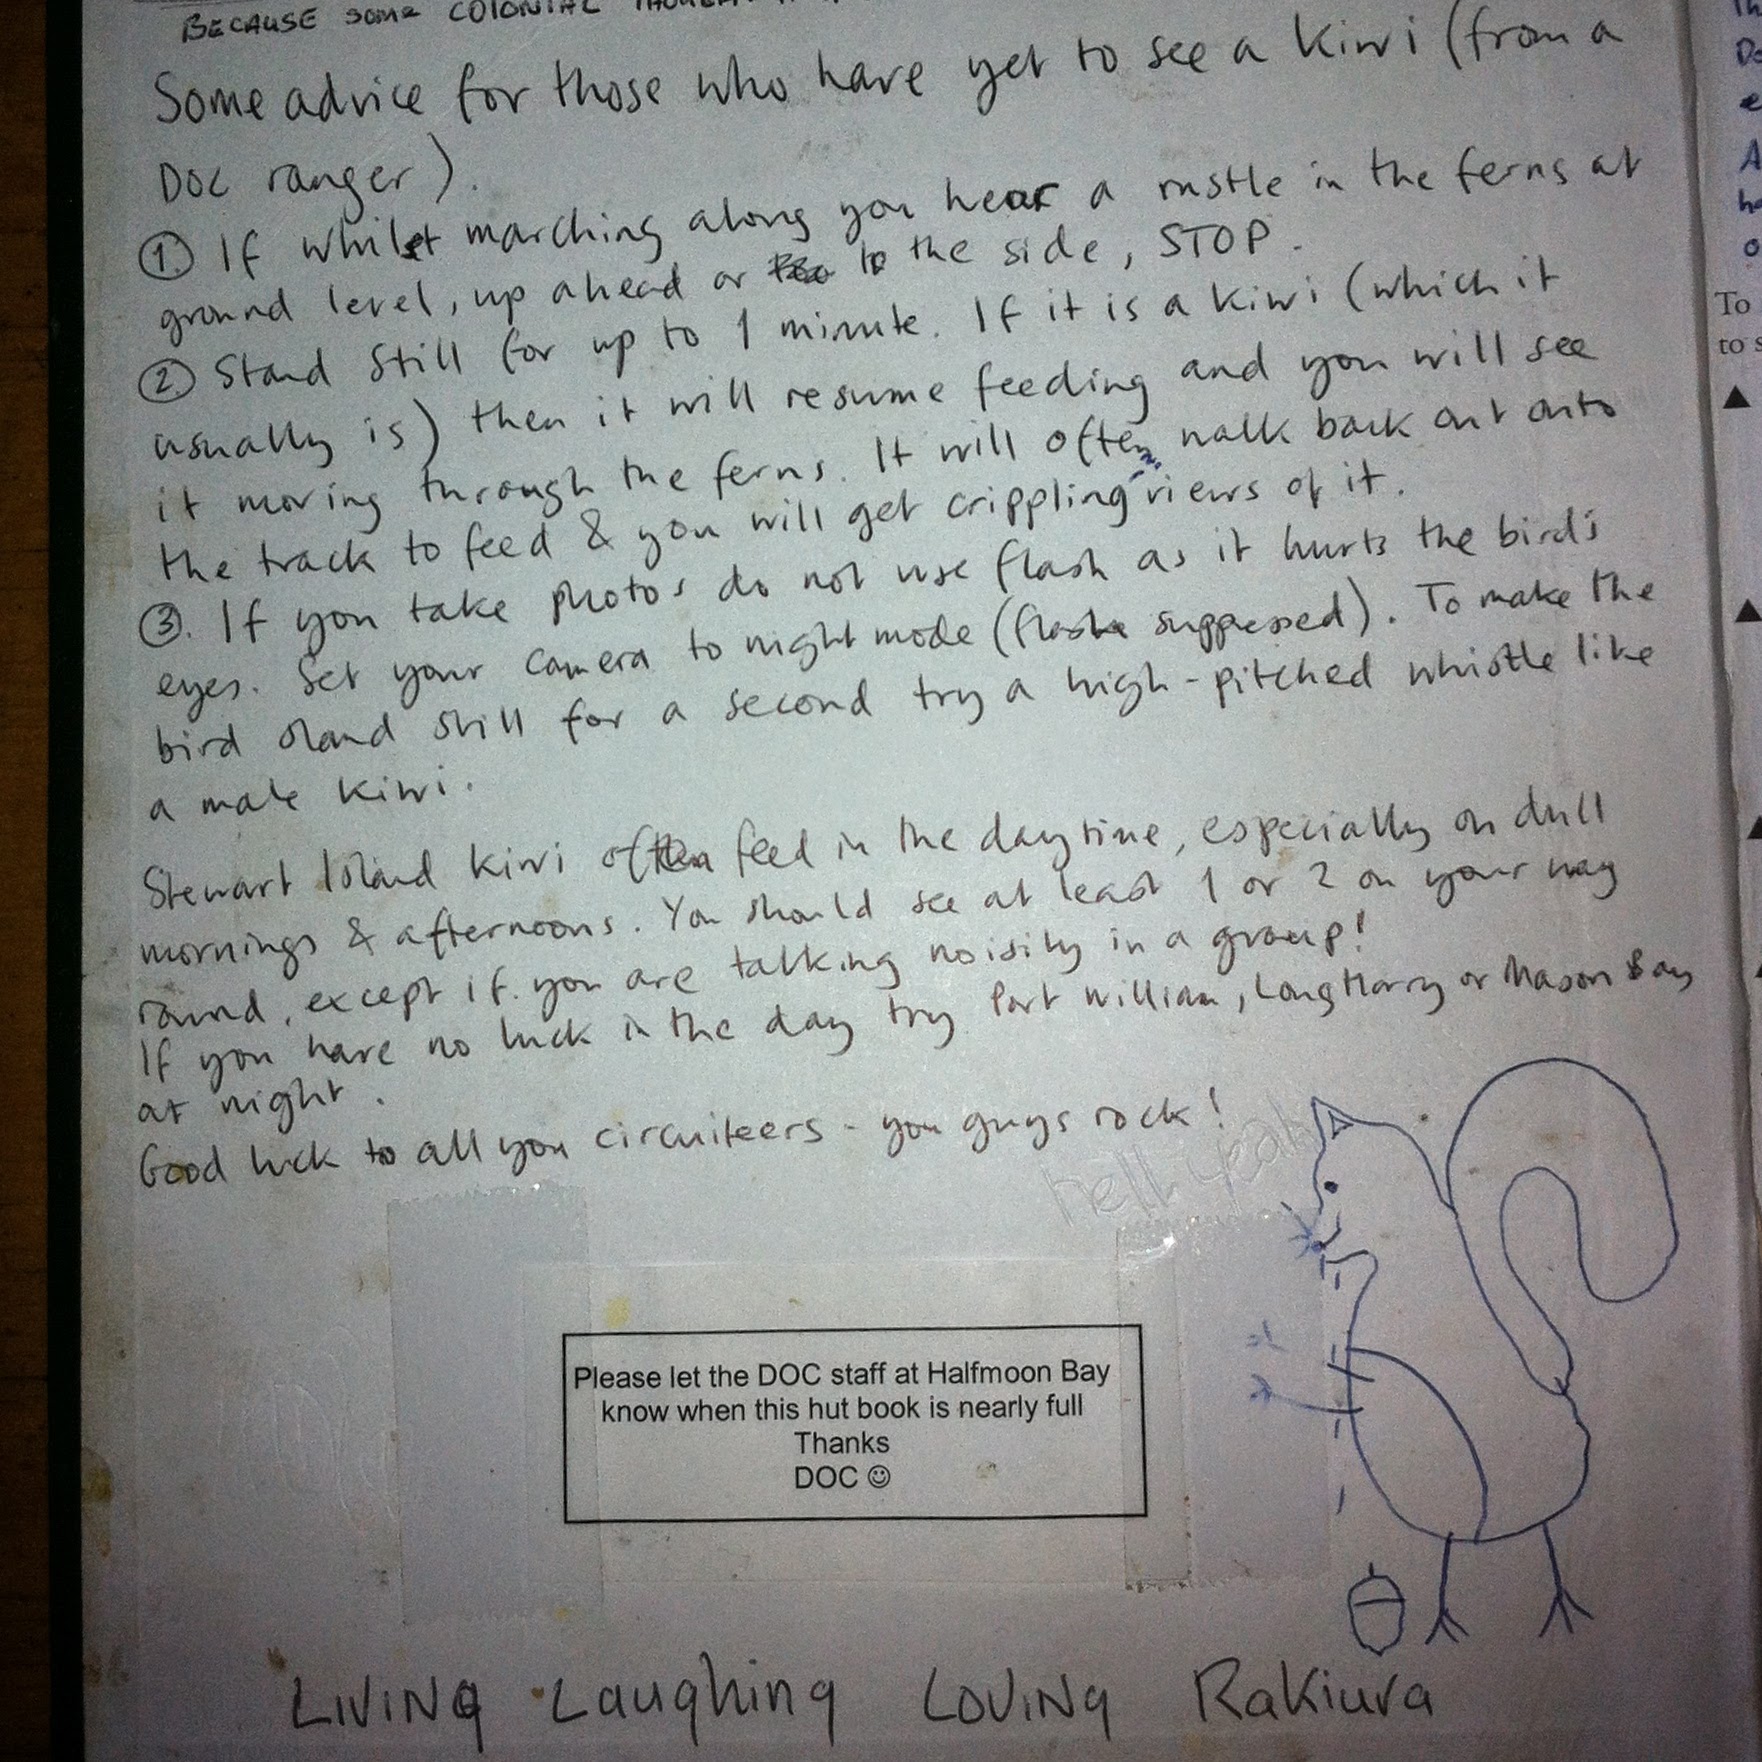 BECAUSE some COLONIAL
Some advice for those who have yet to see a kiwi (from a
DOC ranger).
1. If whilst marching along you hear a rustle in the ferns at
ground level, up ahead or to the side, STOP.
2. Stand still for up to 1 minute. If it is a kiwi (which it
usually is) then it will resume feeding and you will see
it moving through the ferns. It will often walk back out onto
the track to feed & you will get crippling views of it.
3. If you take photos do not use flash as it hurts the bird's
eyes. Set your camera to night mode (flash suppressed). To make the
bird stand still for a second try a high-pitched whistle like
a male kiwi.
Stewart Island kiwi often feed in the daytime, especially on dull
mornings & afternoons. You should see at least 1 or 2 on your way
round, except if you are talking noisily in a group!
If you have no luck in the day try Port William, Long Harry or Mason Bay
at night.
Good luck to all you circuiteers - you guys rock!
hell yeah
Please let the DOC staff at Halfmoon Bay
know when this hut book is nearly full
Thanks
DOC ☺
LIVING Laughing LOVING Rakiura
To
to s